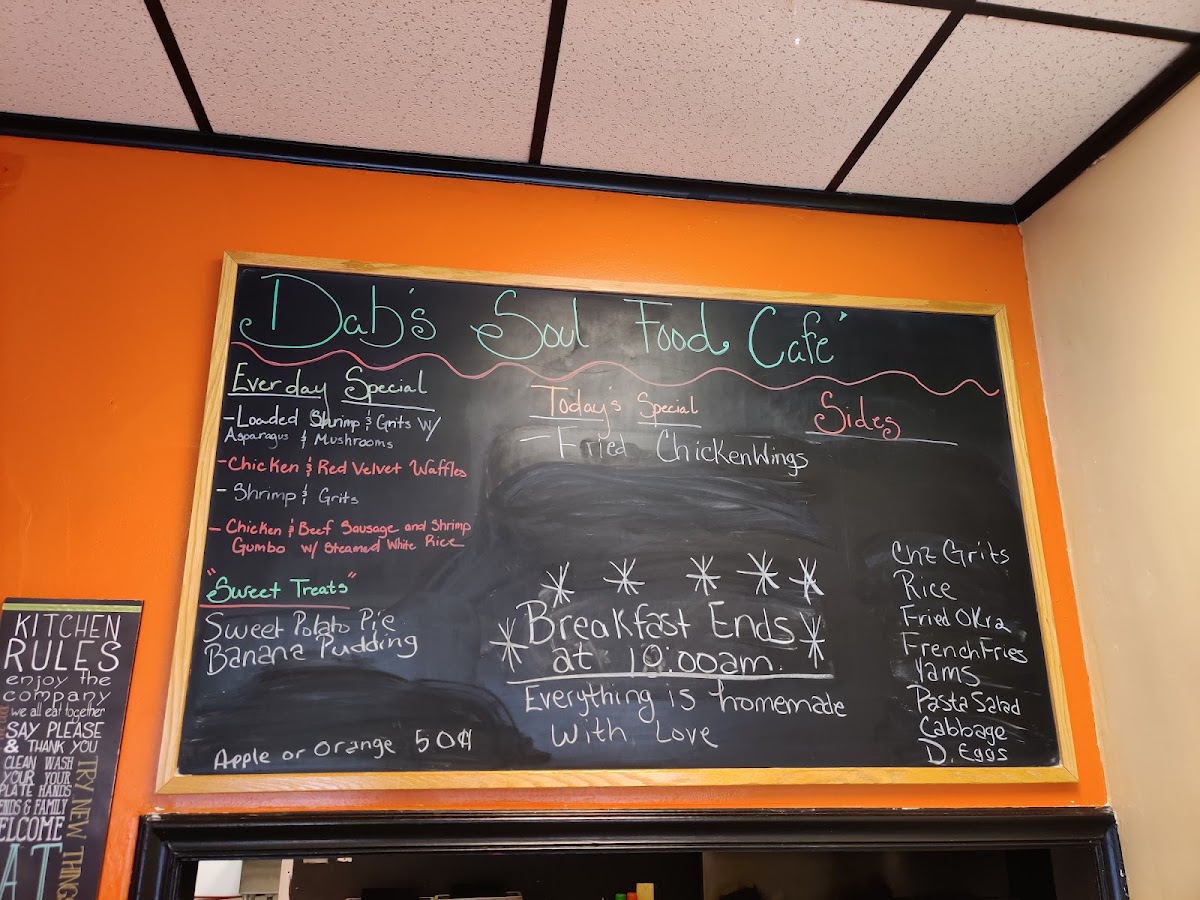 Dab's Soul Food Cafe'
Everday Special
- Loaded Shrimp & Grits w/
Asparagus & Mushrooms
- Chicken & Red Velvet Waffles
- Shrimp & Grits
- Chicken & Beef Sausage and Shrimp
Gumbo w/ Steamed White Rice
"Sweet Treats"
Sweet Potato Pie
Banana Pudding
Apple or Orange 50¢
Today's Special
- Fried Chicken Wings
Breakfast Ends
at 10:00am
Everything is homemade
With Love
Sides
Chz Grits
Rice
Fried Okra
French Fries
Yams
Pasta Salad
Cabbage
D. Eggs
KITCHEN
RULES
enjoy the
company
we all eat together
SAY PLEASE
& THANK YOU
CLEAN WASH
YOUR YOUR
PLATE HANDS
& FAMILY
TRY NEW THINGS